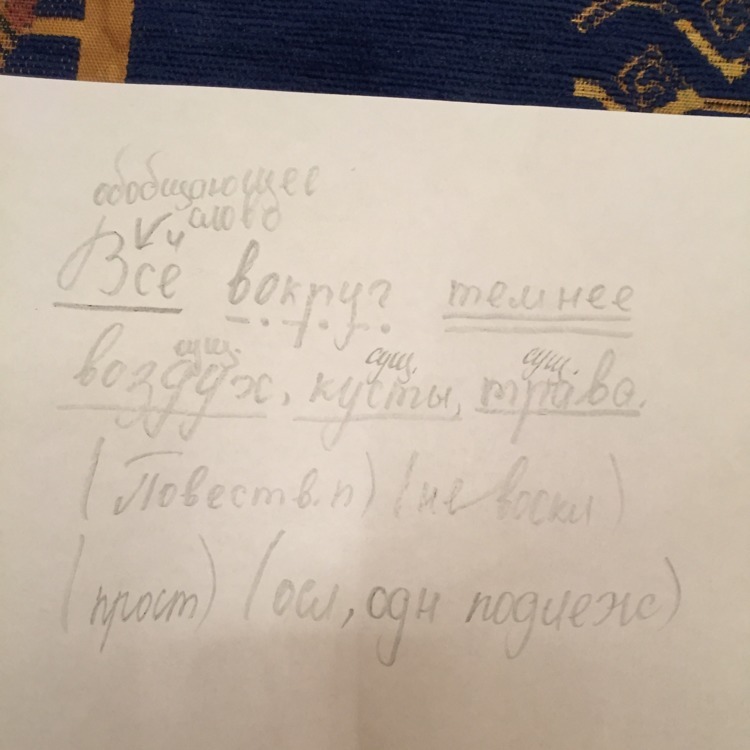 обобщающее
слово
ч
Всё вокруг темнее
сущ. сущ. сущ.
воздух, кусты, трава.
(Повеств.п) (не воскл)
(прост) (осл, одн подлеж)